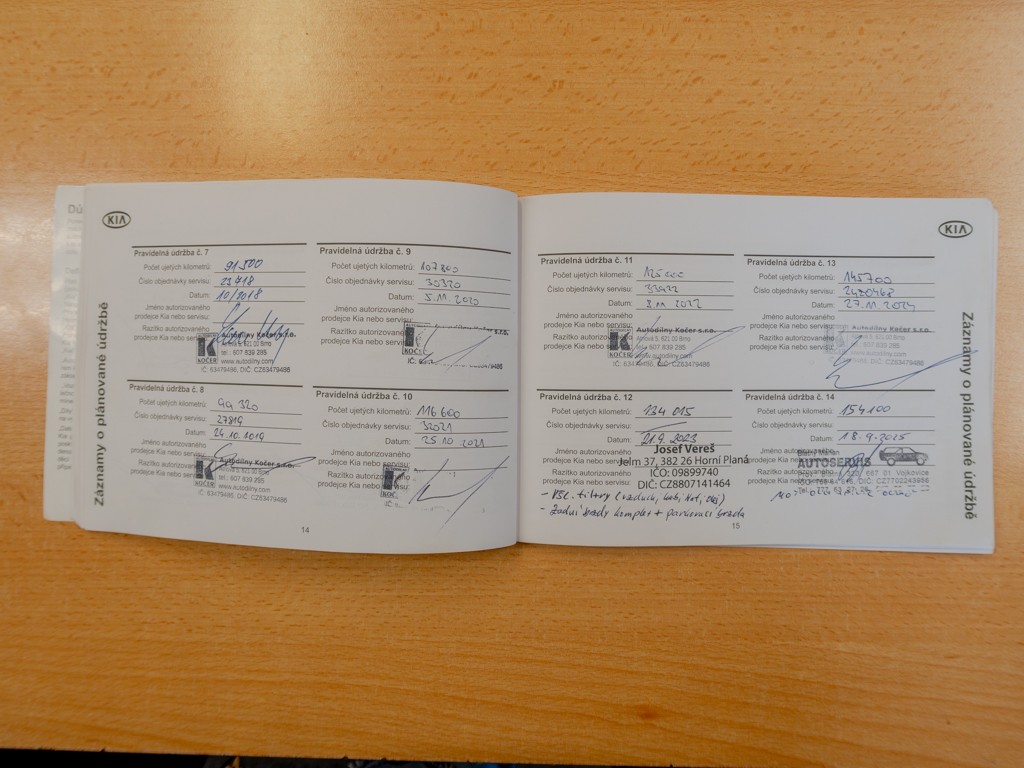 KIA
Záznamy o plánované údržbě
Pravidelná údržba č. 7
Počet ujetých kilometrů: 91.500
Číslo objednávky servisu: 23418
Datum: 10/2018
Jméno autorizovaného
prodejce Kia nebo servisu:
Razítko autorizovaného
prodejce Kia nebo servisu:
Autodíly Kočer s.r.o.
621 00 Brno
tel.: 607 839 285
www.autodilny.com
IČ: 63479486, DIČ: CZ63479486
KOČER
Pravidelná údržba č. 8
Počet ujetých kilometrů: 99 320
Číslo objednávky servisu: 27819
Datum: 24.10.1019
Jméno autorizovaného
prodejce Kia nebo servisu:
Razítko autorizovaného
prodejce Kia nebo servisu:
Autodílny Kočer s.r.o.
621 00 Brno
tel.: 607 839 285
www.autodilny.com
IČ: 63479486, DIČ: CZ63479486
KOČER
Pravidelná údržba č. 9
Počet ujetých kilometrů: 107300
Číslo objednávky servisu: 30320
Datum: 5.11.2020
Jméno autorizovaného
prodejce Kia nebo servisu:
Razítko autorizovaného
prodejce Kia nebo servisu:
s.r.o.
KOČER
Pravidelná údržba č. 10
Počet ujetých kilometrů: 116 600
Číslo objednávky servisu: 32021
Datum: 25.10.2021
Jméno autorizovaného
prodejce Kia nebo servisu:
Razítko autorizovaného
prodejce Kia nebo servisu:
14
KIA
Záznamy o plánované údržbě
Pravidelná údržba č. 11
Počet ujetých kilometrů: 125000
Číslo objednávky servisu: 33422
Datum: 8 11 2022
Jméno autorizovaného
prodejce Kia nebo servisu:
Razítko autorizovaného
prodejce Kia nebo servisu:
Autodílny Kočer s.r.o.
621 00 Brno
tel.: 607 839 285
www.autodilny.com
IČ: 63479486, DIČ: CZ63479486
KOČER
Pravidelná údržba č. 12
Počet ujetých kilometrů: 134 015
Číslo objednávky servisu:
Datum: 21.9.2023
Jméno autorizovaného
prodejce Kia nebo servisu:
Razítko autorizovaného
prodejce Kia nebo servisu:
Josef Vereš
Jelm 37, 382 26 Horní Planá
IČO: 09899740
DIČ: CZ8807141464
- filtry (vzduch, kab, olej)
- Zadní brzdy komplet + parkovací brzda
Pravidelná údržba č. 13
Počet ujetých kilometrů: 145700
Číslo objednávky servisu: 2420468
Datum: 27.11.2024
Jméno autorizovaného
prodejce Kia nebo servisu:
Razítko autorizovaného
prodejce Kia nebo servisu:
Autodílny Kočer s.r.o.
Pravidelná údržba č. 14
Počet ujetých kilometrů: 154100
Číslo objednávky servisu:
Datum: 18.9.2025
Jméno autorizovaného
prodejce Kia nebo servisu:
Razítko autorizovaného
prodejce Kia nebo servisu:
AUTOSERVIS
667 01 Vojkovice
DIČ: CZ7702243956
15